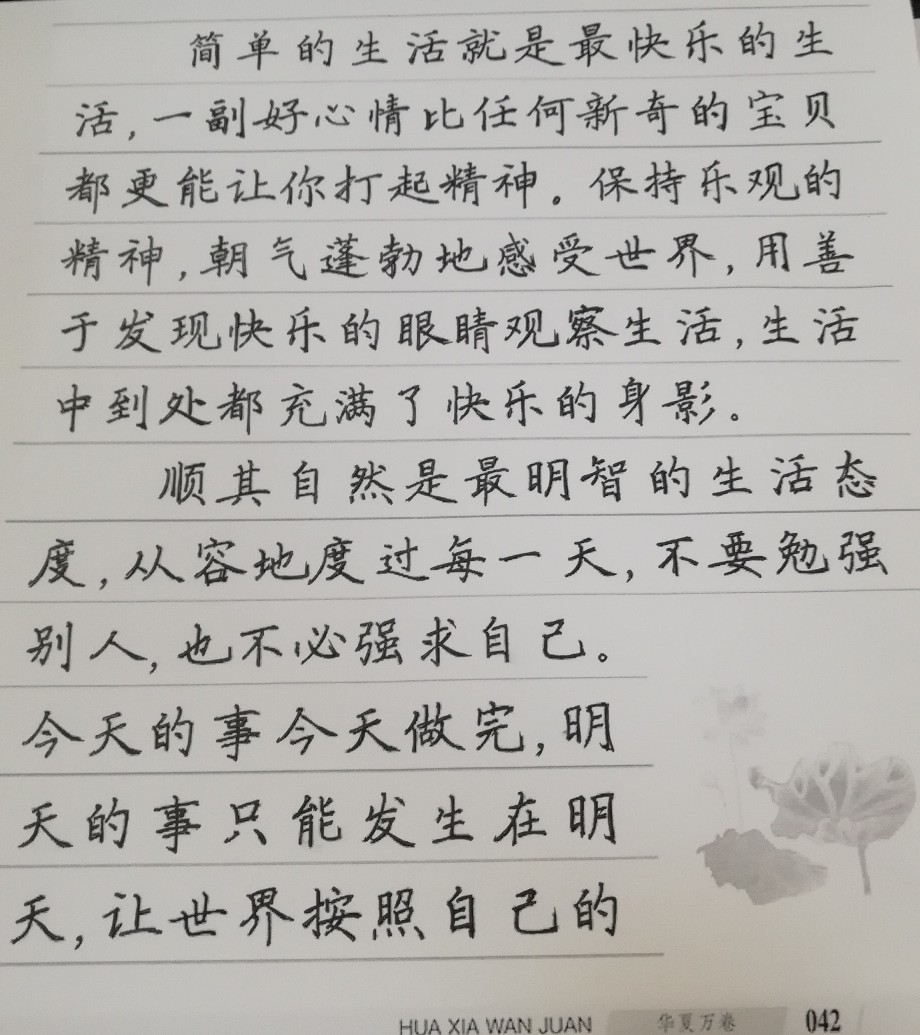 简单的生活就是最快乐的生
活,一副好心情比任何新奇的宝贝
都更能让你打起精神。保持乐观的
精神,朝气蓬勃地感受世界,用善
于发现快乐的眼睛观察生活,生活
中到处都充满了快乐的身影。
顺其自然是最明智的生活态
度,从容地度过每一天,不要勉强
别人,也不必强求自己。
今天的事今天做完,明
天的事只能发生在明
天,让世界按照自己的
HUA XIA WAN JUAN 华夏万卷 042